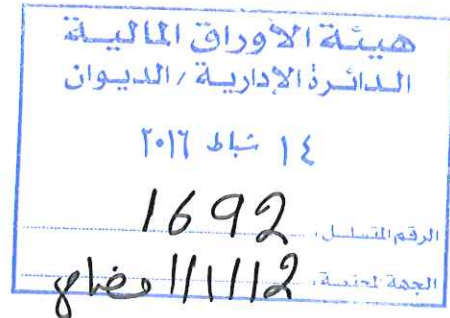 هيئة الأوراق المالية
الدائرة الإدارية / الديوان
١٤ شباط ٢٠١٦
الرقم المتسلسل: 1692
الجهة المختصة: 111/1/2